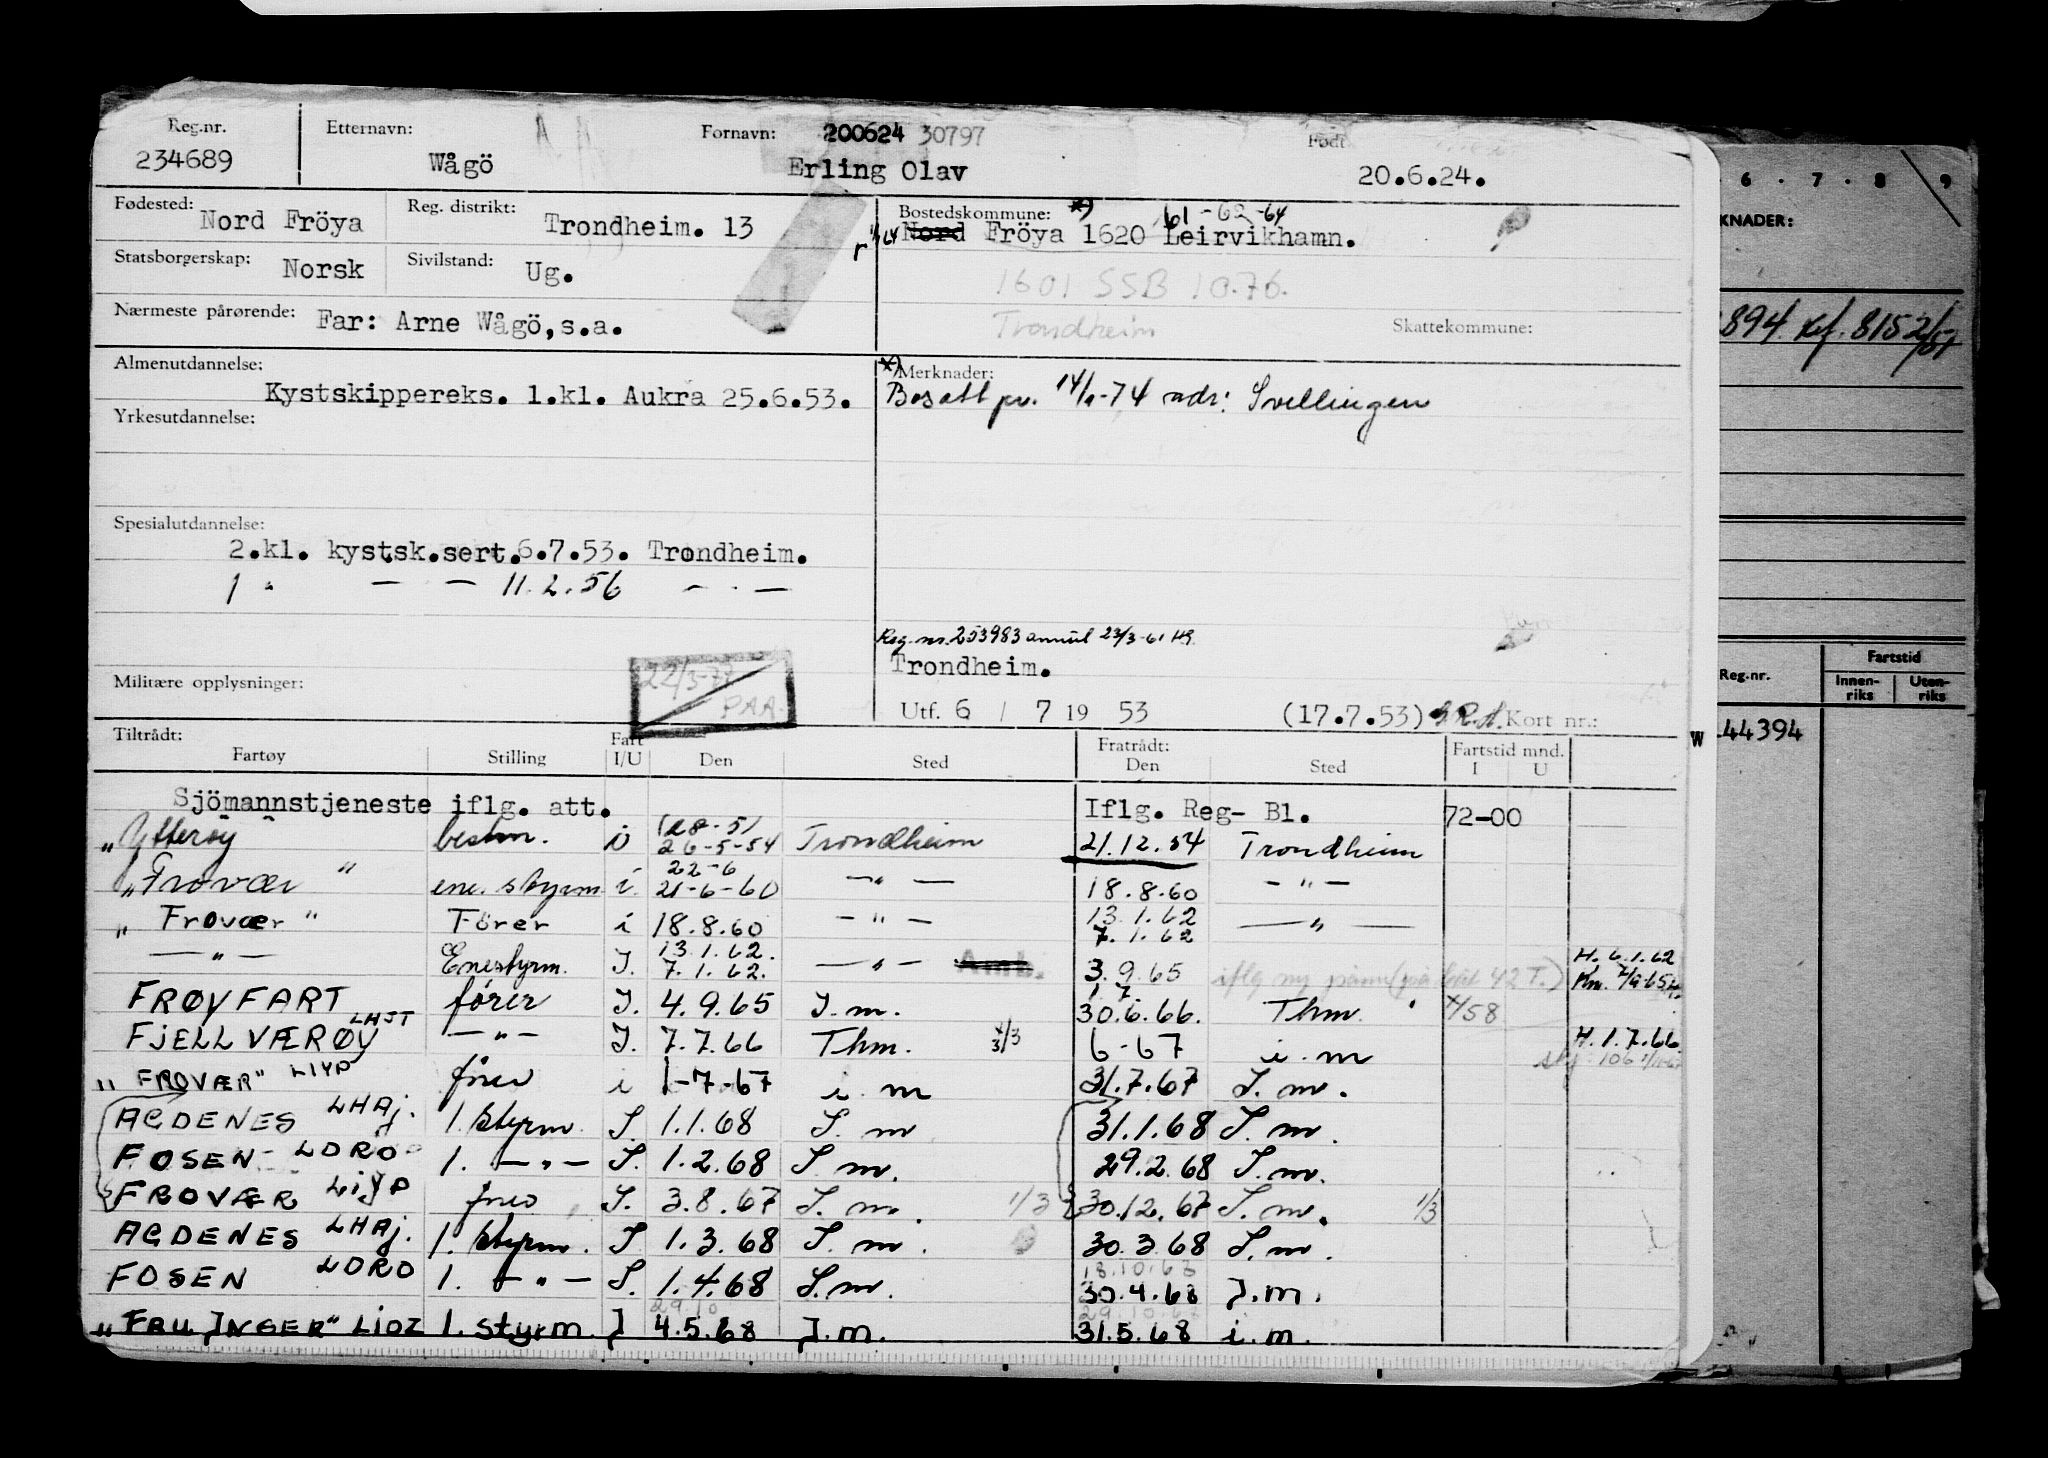 Reg.nr. Etternavn: Fornavn: 200624 30797 Født
234689 Wågö Erling Olav 20.6.24.
Fødested: Nord Fröya Reg. distrikt: Trondheim. 13 Bostedskommune: *) 61-62-64
Nord Fröya 1620 Leirvikhamn.
Statsborgerskap: Norsk Sivilstand: Ug.
1601 SSB 10.76.
Nærmeste pårørende: Far: Arne Wågö,s.a. Trondheim Skattekommune:
Almenutdannelse: *) Merknader:
Kystskippereks. 1.kl. Aukra 25.6.53. Bosatt pr. 14/1-74 adr: Svellingen
Yrkesutdannelse:
Spesialutdannelse:
2.kl. kystsk.sert.6.7.53. Trondheim.
1 " — — 11.2.56 — . —
Reg.nr. 253983 annul 23/3-61
Trondheim.
Militære opplysninger: 22/5-77 PAA.
Utf. 6 / 7 19 53 (17.7.53) Kort nr.:
Tiltrådt: Fratrådt: Fartstid mnd.
Fartøy Stilling Fart I/U Den Sted Den Sted I U
Sjömannstjeneste iflg. att. Iflg. Reg- Bl. 72-00
"Ytterøy" bestm. 28-51 26-5-54 Trondheim 21.12.54 Trondheim
"Frovær" ene. styrm i. 22-6 21-6-60 —"— 18.8.60 —"—
"Frovær" Förer i 18.8.60 —"— 13.1.62 7.1.62 —"—
—"— Enestyrm. I. 13.1.62. 7.1.62. —"— Amb. 3.9.65 H. 6.1.62
FRØYFART fører I. 4.9.65 I.m. 1.7. 30.6.66. Thm. 4/58
FJELLVÆRØY LHJT —"— I. 7.7.66 Thm. 6-67 i.m H. 1.7.66
"FROVÆR" LIYP fører i 1-7-67 i.m 31.7.67 I.m.
AGDENES LHAJ. 1. styrm. I. 1.1.68 I.m 31.1.68 I.m.
FOSEN LDRO 1. —"— I. 1.2.68 I.m. 29.2.68 I.m.
FROVÆR LIYP fører I. 3.8.67 I.m. 1/3 30.12.67 I.m. 1/3
AGDENES LHAJ. 1. styrm. I 1.3.68 I.m. 30.3.68 I.m.
FOSEN LDRO 1. —"— I. 1.4.68 I.m. 18.10.63 30.4.68 I.m.
"FRU INGER" LIOZ 1. styrm. I 29.10 4.5.68 I.m. 31.5.68 i.m.
W
6 . 7 . 8 9
KNADER:
894. Kf. 8152/51
Reg.nr. Fartstid
Innenriks Utenriks
44394